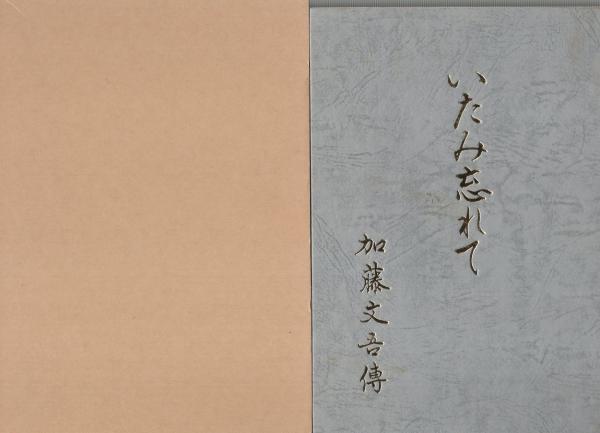 いたみ忘れて
加藤文吾傳